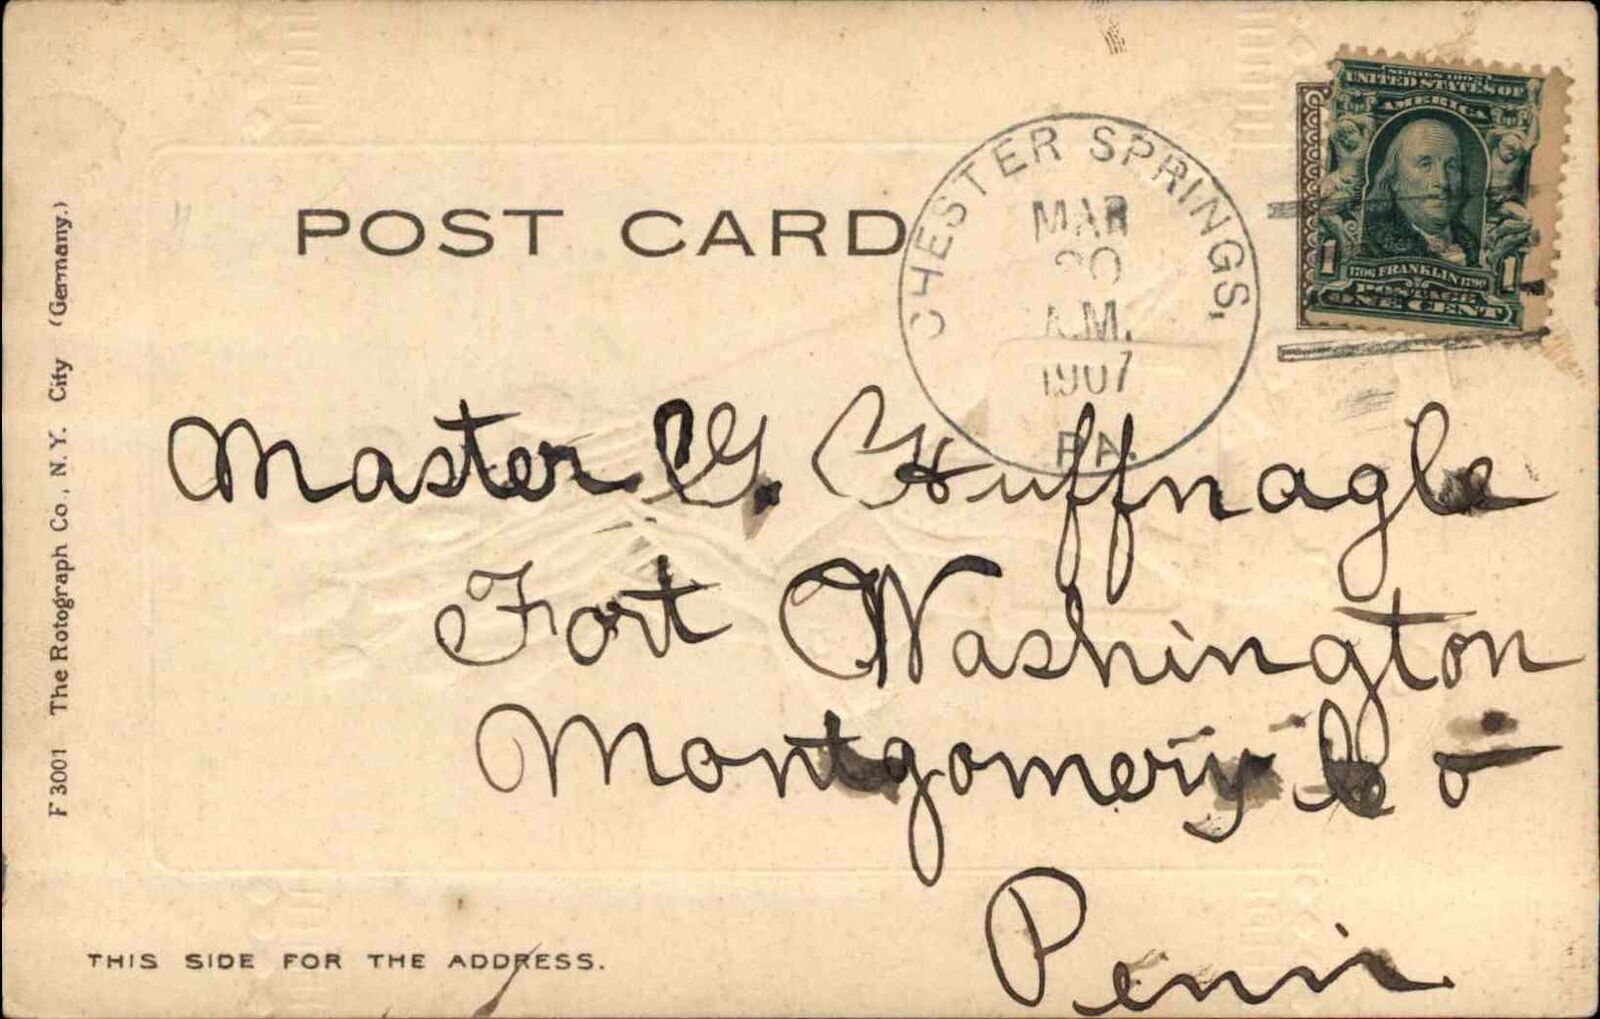 POST CARD
CHESTER SPRINGS,
MAR
A.M.
1907
PA.
SERIES 1902
UNITED STATES OF
AMERICA
1 1706 FRANKLIN 1790 1
POSTAGE
ONE CENT
Master G. Huffnagle
Fort Washington
Montgomery Co
Penn
THIS SIDE FOR THE ADDRESS.
F 3001 The Rotograph Co., N. Y. City (Germany.)